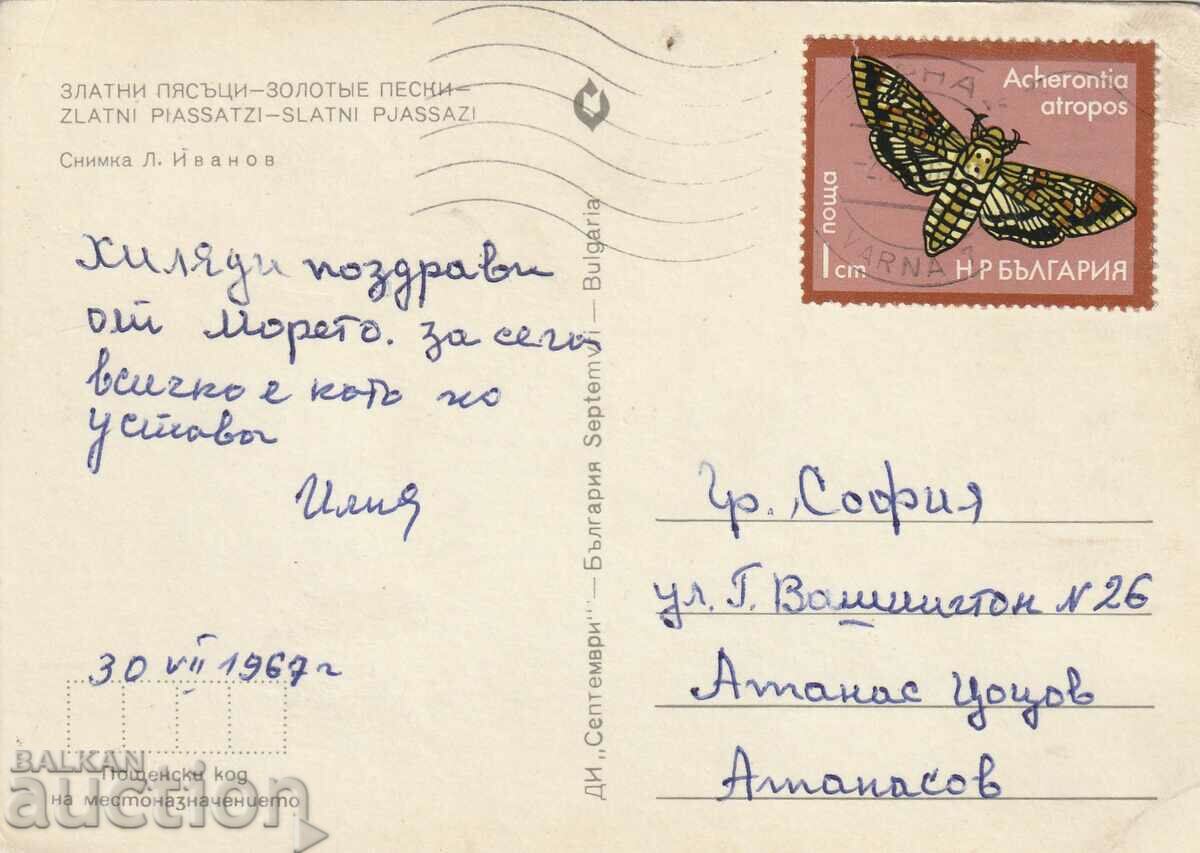 ЗЛАТНИ ПЯСЪЦИ—ЗОЛОТЫЕ ПЕСКИ—
ZLATNI PIASSATZI—SLATNI PJASSAZI
Снимка Л. Иванов
Acherontia
atropos
поща
1 cm
НР БЪЛГАРИЯ
VARNA
Хиляди поздрави
от морето. за сега
всичко е като по
устава
Илия
30 VII 1967 г
Пощенски код
на местоназначението
ДИ „Септември" — България Septemvri — Bulgaria
Гр. София
ул. Г. Вашингтон N 26
Атанас Цоцов
Атанасов
BALKAN
auction